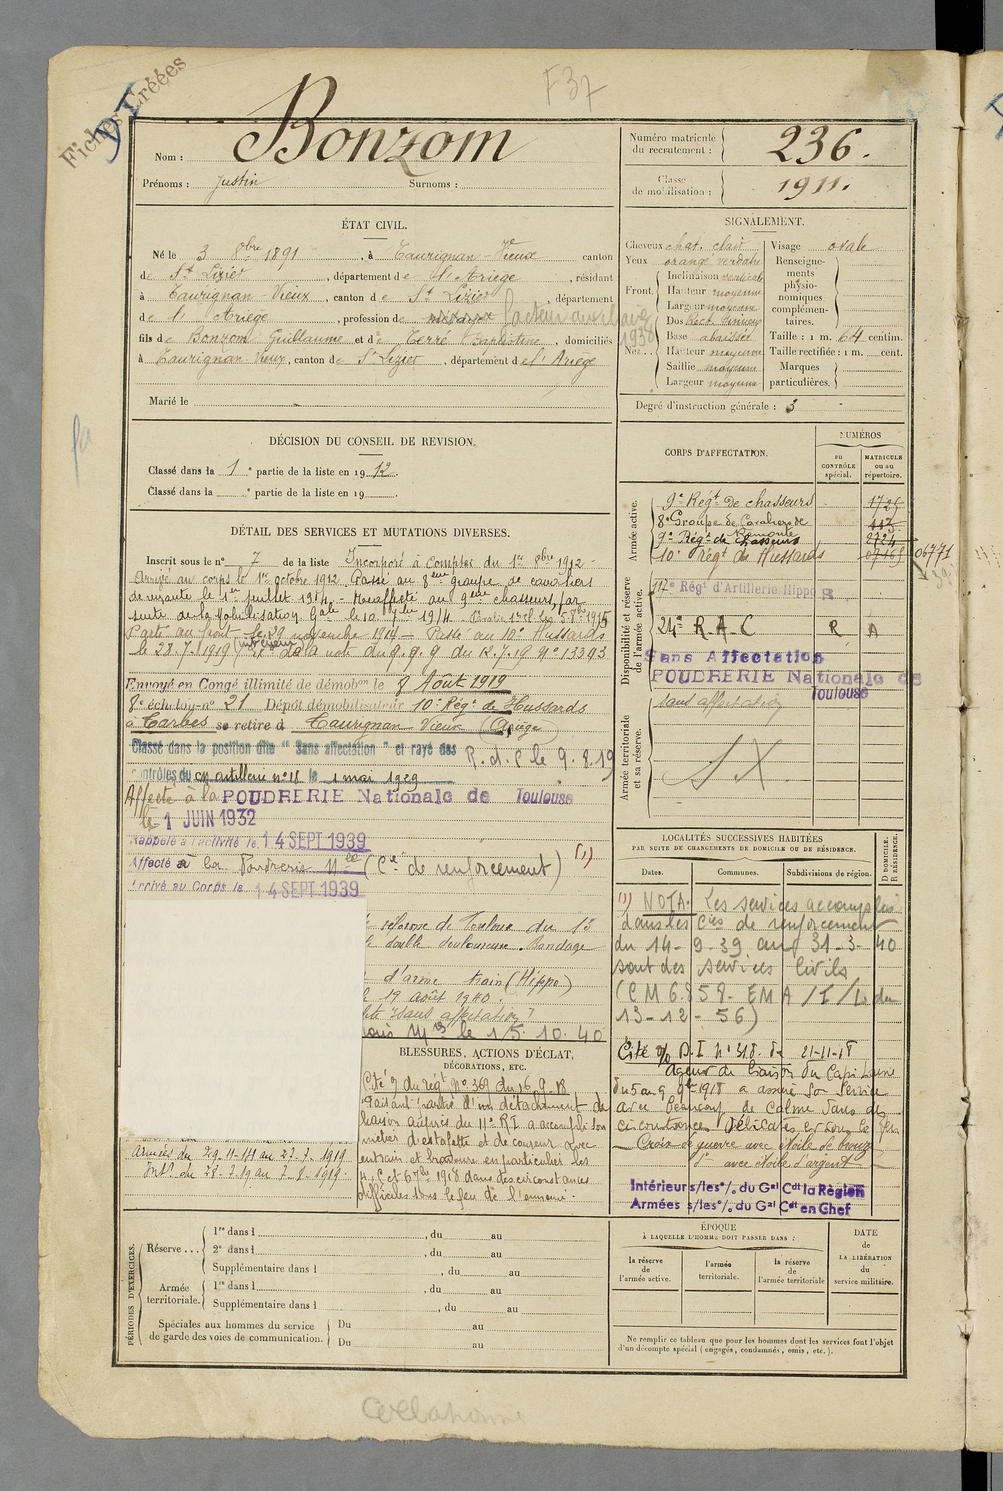 Fiches Créées
F37
Nom : Bonzom
Prénoms : Justin Surnoms :
Numéro matricule du recrutement : 236.
Classe de mobilisation : 1911.
ÉTAT CIVIL.
Né le 3 8bre 1891, à Taurignan-Vieux canton
de St Lizier, département de l'Ariège, résidant
à Taurignan-Vieux, canton de St Lizier, département
de l'Ariège, profession de facteur
fils de Bonzom Guillaume et de Terré Baptistine, domiciliés
à Taurignan Vieux, canton de St Lizier, département de l'Ariège
1938
Marié le
SIGNALEMENT.
Cheveux chat. clair
Yeux orangé verdâtre
Front. Inclinaison verticale
Hauteur moyenne
Largeur moyenne
Nez. Dos Rect.
Base abaissée
Hauteur moyenne
Saillie moyenne
Largeur moyenne
Visage ovale
Renseignements physionomiques complémentaires.
Taille : 1 m. 64 centim.
Taille rectifiée : 1 m. cent.
Marques particulières.
Degré d'instruction générale : 3
DÉCISION DU CONSEIL DE REVISION.
Classé dans la 1e partie de la liste en 1912.
Classé dans la e partie de la liste en 19
DÉTAIL DES SERVICES ET MUTATIONS DIVERSES.
Inscrit sous le n° 7 de la liste Incorporé à compter du 1er 8bre 1912
Arrivé au corps le 1er octobre 1912. Passé au 8ème groupe de cavaliers
de remonte le 1er juillet 1914. Réaffecté au 9ème chasseurs, par
suite de la Mobilisation Gale le 10 7bre 1914
Parti au front le 29 novembre 1914 - Passé au 10e Hussards
le 28.7.1919 de la note du G.Q.G du 12.7.19 N° 13393
Envoyé en Congé illimité de démobon le 8 Août 1919
8e échelon n° 21 Dépôt démobilisateur 10e Régt de Hussards
à Tarbes se retire à Taurignan Vieux (Ariège)
Classé dans la position dite "Sans affectation" et rayé des
contrôles du CM artillerie n°18 le 1 mai 1929
R.d.C le 9.8.19
Affecté à la POUDRERIE Nationale de Toulouse
le 1 JUIN 1932
Rappelé à l'activité le 14 SEPT 1939
Affecté à la Poudrerie Nle (Cie de renforcement) (1)
Arrivé au Corps le 14 SEPT 1939
réforme de Toulouse du 13
double douloureuse. Bandage
d'arme train (Hippo)
19 août 1940.
"sans affectation"
le 15.10.40
BLESSURES, ACTIONS D'ÉCLAT,
DÉCORATIONS, ETC.
Cité à du régt N° 369 du 16.9.18
"Faisant partie d'un détachement de
liaison auprès du 11e R.I a accompli son
métier d'estafette et de coureur avec
entrain et bravoure en particulier les
4, 5 et 6 7bre 1918 dans des circonstances
difficiles sous le feu de l'ennemi.
Armées du 29.11.14 au 27.7.1919
Intr du 28.7.19 au 7.8.1919.
CORPS D'AFFECTATION.
NUMÉROS
au CONTRÔLE spécial.
MATRICULE ou au répertoire.
Armée active.
9e Régt de chasseurs 1725
8e Groupe de Cavaliers de Remonte
9e Régt de Chasseurs
10e Régt de Hussards 06771
Disponibilité et réserve de l'armée active.
117e Régt d'Artillerie Hippo
24e R.A.C R A
Sans Affectation
POUDRERIE Nationale de
Toulouse
sans affectation
Armée territoriale et sa réserve.
SX
LOCALITÉS SUCCESSIVES HABITÉES
PAR SUITE DE CHANGEMENTS DE DOMICILE OU DE RÉSIDENCE.
Dates. Communes. Subdivisions de région. D DOMICILE. R RÉSIDENCE.
(1) NOTA. Les services accomplis
dans les Cies de renforcement
du 14-9-39 au 31-3-40
sont des services civils
(CM 6.858. EMA/1/L du
13-12-56)
Cité o/o D.I n°318. du 21-11-18
agent de liaison du Capitaine
du 5 au 9 9bre 1918 a assuré son service
avec beaucoup de calme dans des
circonstances délicates et sous le feu
Croix de guerre avec étoile de bronze
avec étoile d'argent
Intérieur s/les °/. du Gal Cdt la Région
Armées s/les °/. du Gal Cdt en Chef
PÉRIODES D'EXERCICES.
Réserve... 1re dans l , du au
2e dans l , du au
Supplémentaire dans l , du au
Armée territoriale. 1re dans l , du au
Supplémentaire dans l , du au
Spéciales aux hommes du service de garde des voies de communication. Du au
Du au
ÉPOQUE
À LAQUELLE L'HOMME DOIT PASSER DANS :
la réserve de l'armée active.
l'armée territoriale.
la réserve de l'armée territoriale
DATE de LA LIBÉRATION du service militaire.
Ne remplir ce tableau que pour les hommes dont les services font l'objet
d'un décompte spécial (engagés, condamnés, omis, etc.).